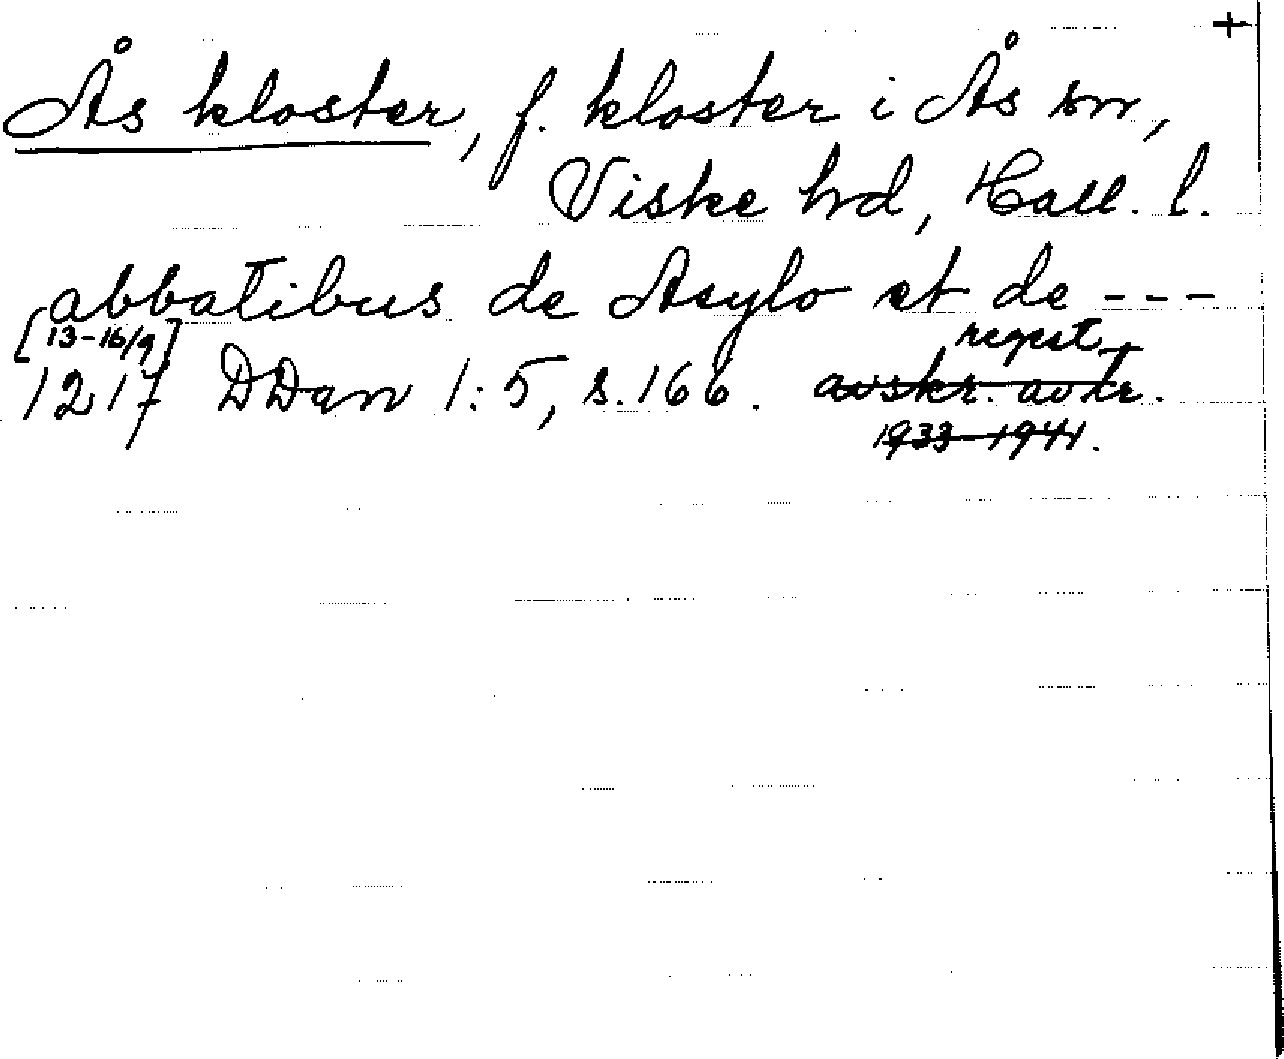 +
Ås kloster, f. kloster i Ås sn,
Viske hd, Hall. l.
abbatibus de Asylo et de ---
[13-16/9] regest
1217 DDan 1:5, s.166. avskr. avtr.
1933-1941.